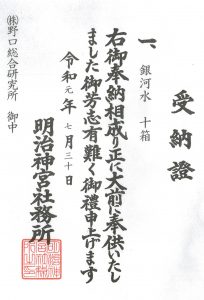 受納證
一、銀河水 十箱
右御奉納相成り正に大前に奉供いたし
ました御芳志有難く御禮申上げます
令和元年七月三十日
明治神宮社務所
㈱野口総合研究所 御中